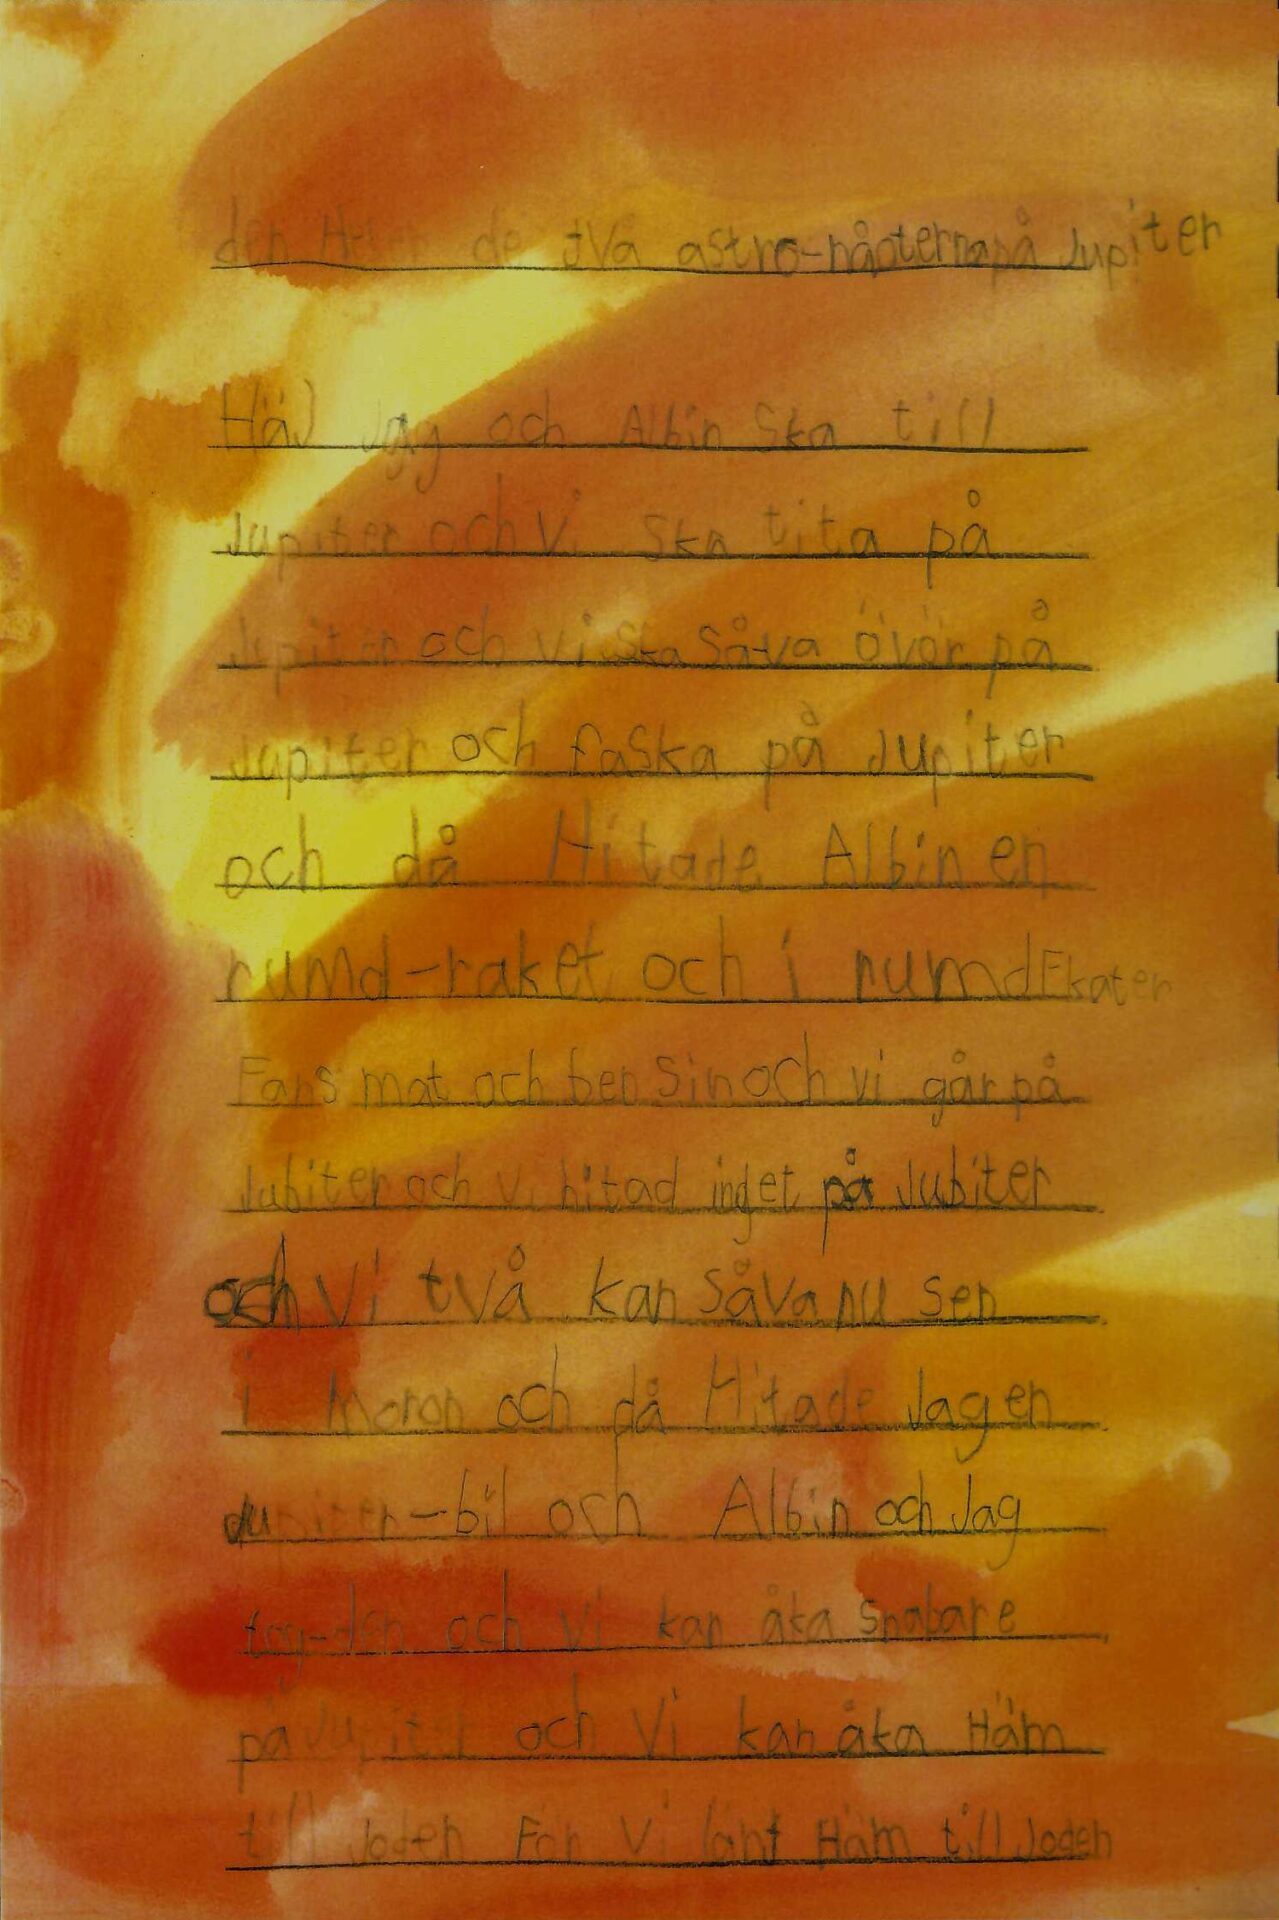 den de två astro-nåoterna på Jupiter
Häj Jag och Albin Ska till
Jupiter och vi Ska tita på
Jupiter och vi ska såva övör på
Jupiter och faska på Jupiter
och då Hitade Albin en
rumd-raket och i rumdEkater
Fans mat och bensin och vi går på
Jubiter och vi hitad inget på Jubiter
och vi två kan såva nu sen
i Moron och då Hitade Jag en
Jupiter-bil och Albin och Jag
tog-den och vi kan åka snabare
på Jupiter och Vi kan åka Häm
till Joden För Vi länt Häm till Joden